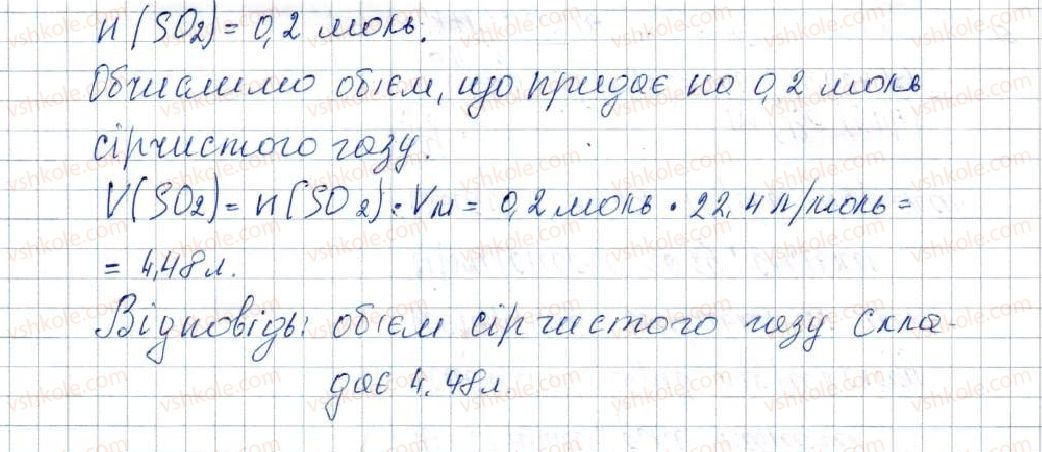 n(SO₂) = 0,2 моль.
Обчислимо об'єм, що придає на 0,2 моль
сірчистого газу.
V(SO₂) = n(SO₂) · Vm = 0,2 моль · 22,4 л/моль =
= 4,48 л.
Відповідь: об'єм сірчистого газу скла-
дає 4,48 л.